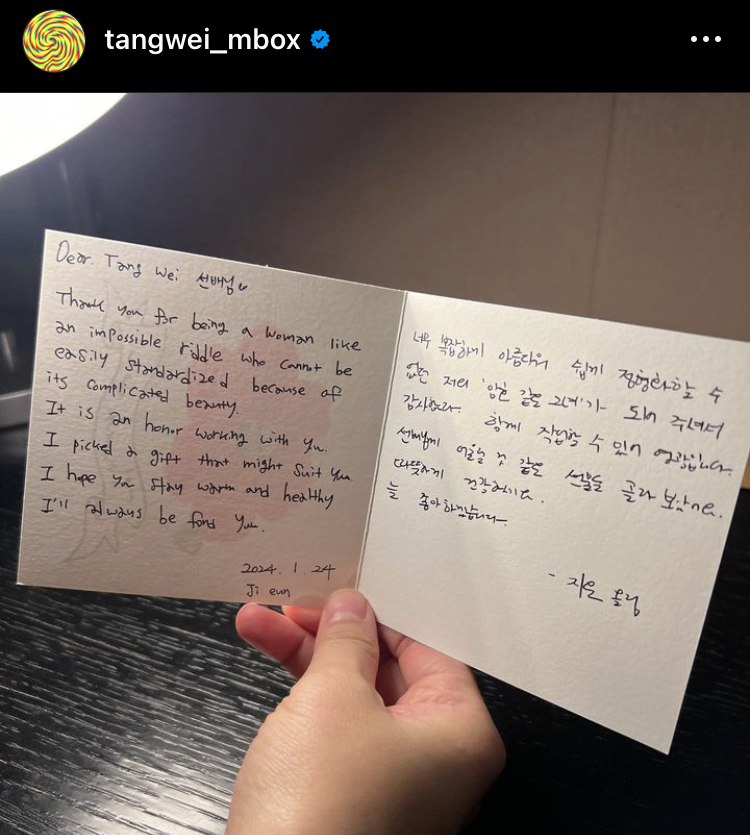 tangwei_mbox
Dear. Tang Wei 선배님♡
Thank you for being a woman like
an impossible riddle who cannot be
easily standardized because of
its complicated beauty.
It is an honor working with you.
I picked a gift that might suit you
I hope you stay warm and healthy
I'll always be fond you.
2024. 1. 24
Ji eun
너무 복잡하게 아름다워 쉽게 정형화할 수
없는 저의 '암호 같은 그녀'가 되어 주셔서
함께 작업할 수 있어 영광입니다.
선배님께 어울릴 것 같은 선물을 골라 보았어요.
따뜻하게 건강하세요.
늘 좋아하겠습니다
- 지은 올림